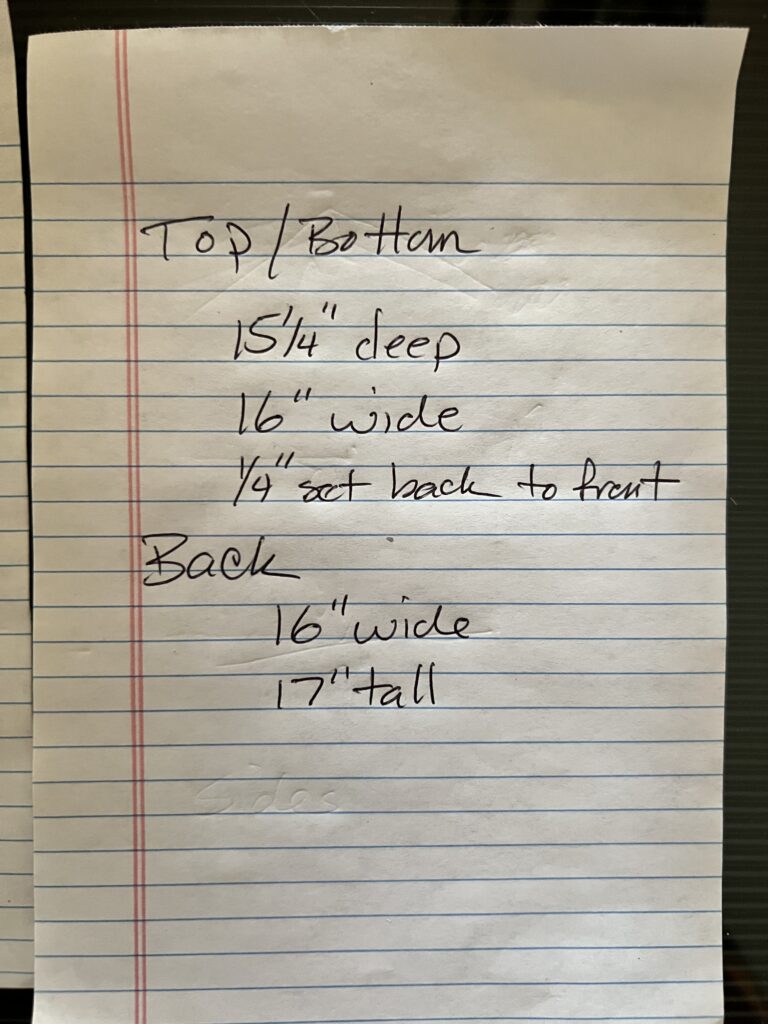 Top/Bottom
15 1/4" deep
16" wide
1/4" set back to front
Back
16" wide
17" tall
Sides